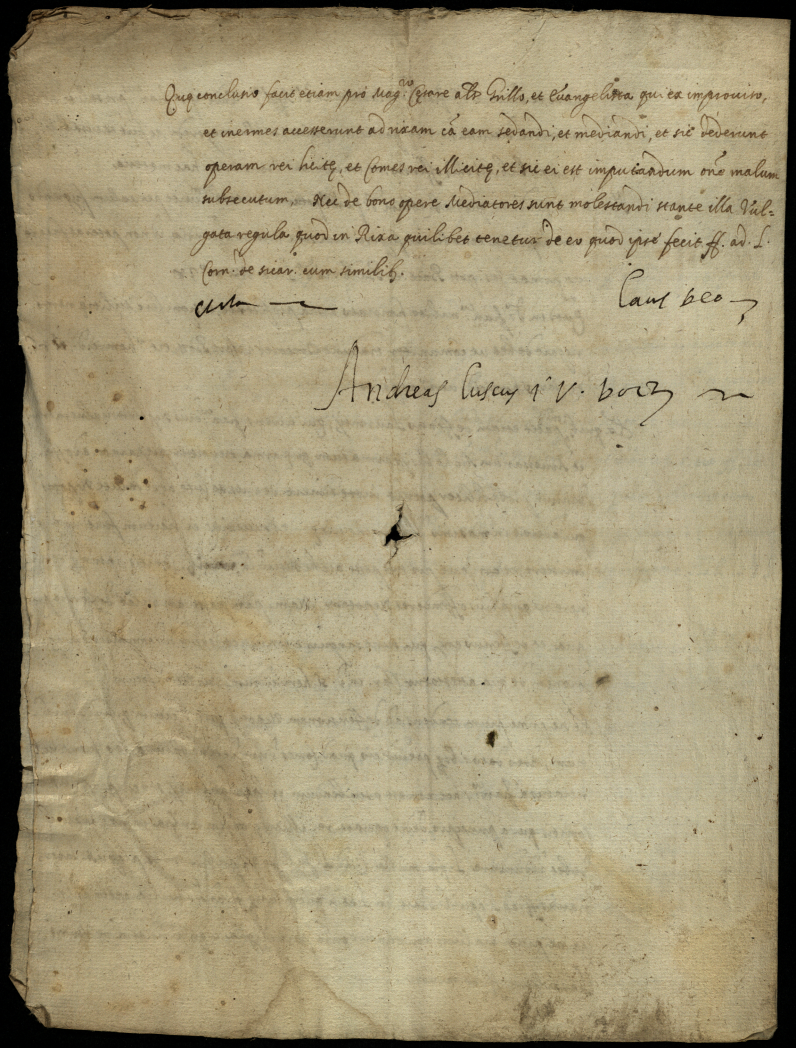 Quę conclusio facit etiam pro Mag.ro Cęsare als Grillo, et Evangelista qui ex improviso,
et inermes accesserunt ad rixam cā eam sedandi, et mediandi, et sic dederunt
operam rei licitę, et Comes rei illicitę, et sic ei est imputandum oñe malum
subsecutum, Nec de bono opere Mediatores sunt molestandi stante illa Vul=
gata regula quod in Rixa quilibet tenetur de eo quod ipse fecit ff. ad. L.
Corn. de sicar. cum similib.
Laus Deo
Andreas Cuscus I V. Doct